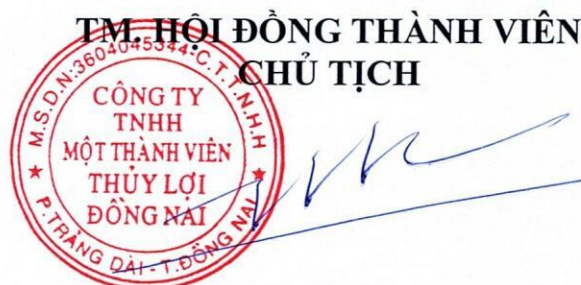 TM. HỘI ĐỒNG THÀNH VIÊN
CHỦ TỊCH
M.S.D.N:3604045344-C.T.T.N.H.H
CÔNG TY
TNHH
MỘT THÀNH VIÊN
THỦY LỢI
ĐỒNG NAI
P.TRẢNG DÀI-T.ĐỒNG NAI